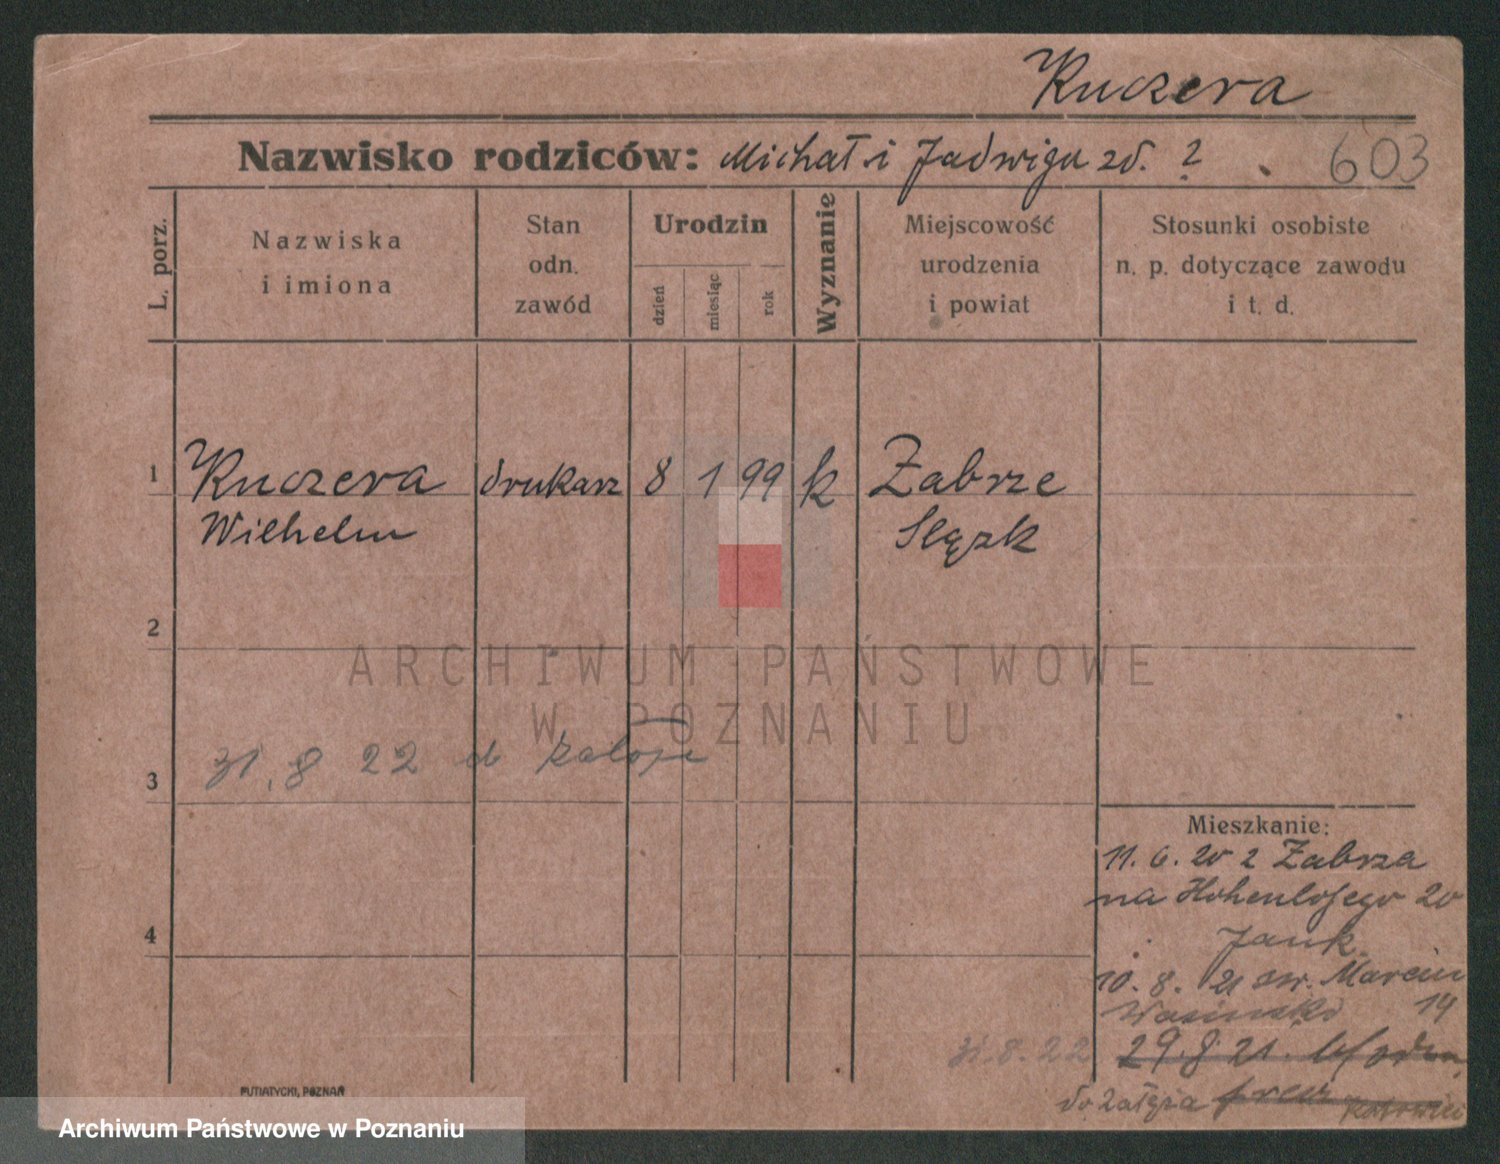 Kuczera
Nazwisko rodziców: Michał i Jadwiga zd. ?
603
L. porz.
Nazwiska
i imiona
Stan
odn.
zawód
Urodzin
dzień
miesiąc
rok
Wyznanie
Miejscowość
urodzenia
i powiat
Stosunki osobiste
n. p. dotyczące zawodu
i t. d.
1
Kuczera drukarz 8 1 99 k Zabrze
Wilhelm Slązk
2
ARCHIWUM PAŃSTWOWE
W POZNANIU
31. 8 22
3
Mieszkanie:
11. 6. 20 z Zabrza
na Hohenlohego 20
4
Jank.
10. 8. 21 św. Marcin
14
31. 8. 22
29. 8. 21.
do Załęża
Katowice
PUTIATYCKI, POZNAŃ
Archiwum Państwowe w Poznaniu